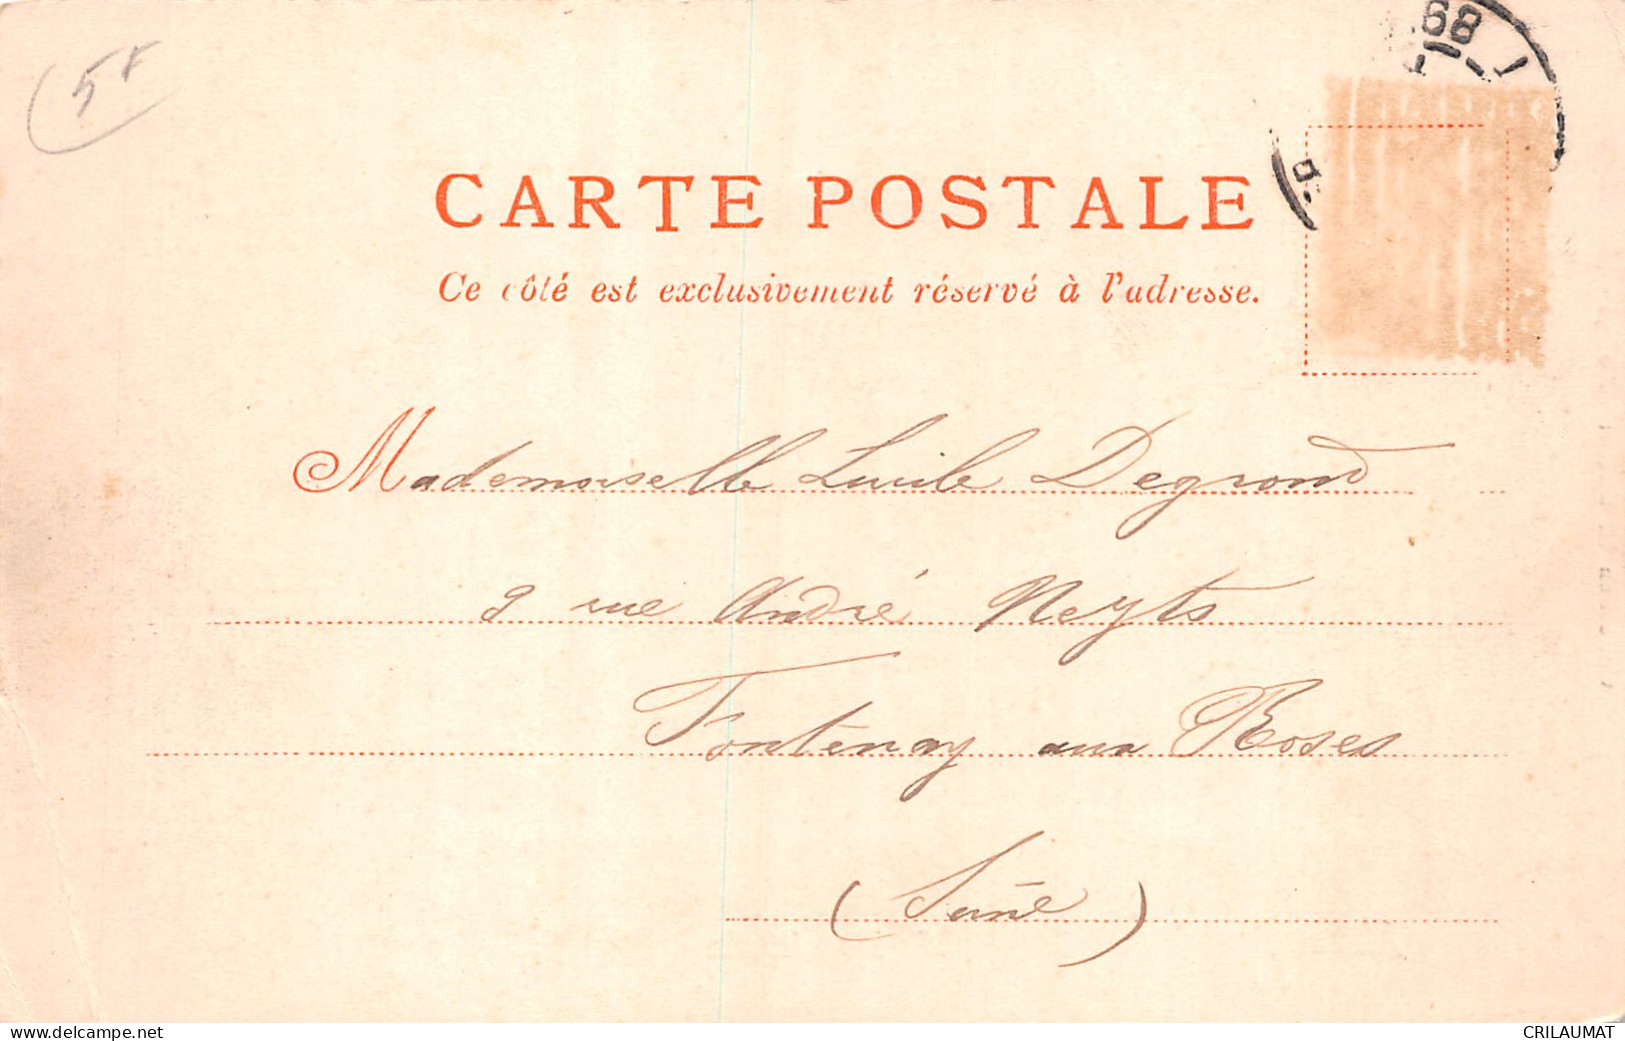 5f
68
CARTE POSTALE
Ce côté est exclusivement réservé à l'adresse.
Mademoiselle Lucile Degrond
9 rue André Neyts
Fontenay aux Roses
(Seine)
www.delcampe.net
CRILAUMAT